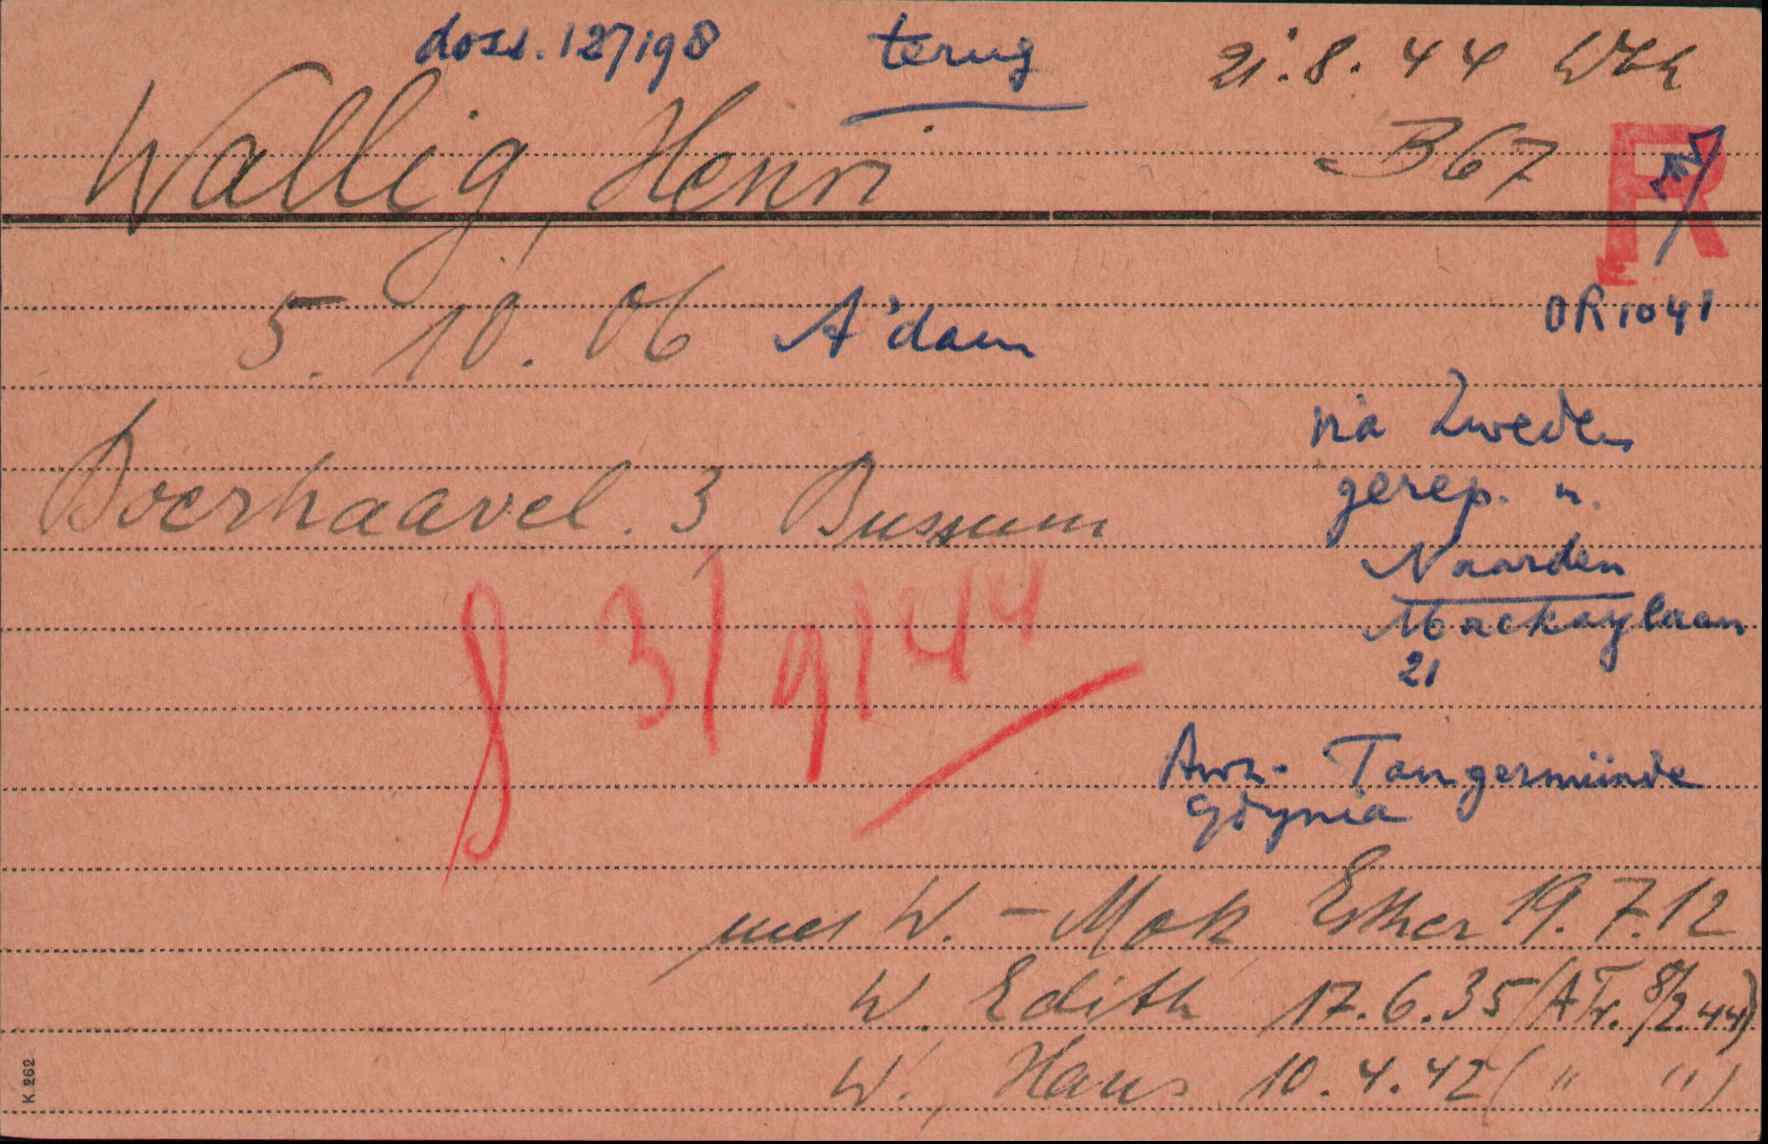 doss. 127/198 terug 21.8.44 Wbk
Wallig, Henri B67 R
5. 10. 06 A'dam OR 1041
via Zweden
Boerhaavel. 3, Bussum gerep. n.
Naarden
Mackaylaan
21
3/9/44
Awz- Tangermünde
Gdynia
met W. - Mok Esther 19.7.12
W. Edith 17.6.35 (A Tr. 8/2.44)
W., Hans 10.4.42 ( " " )
K 262